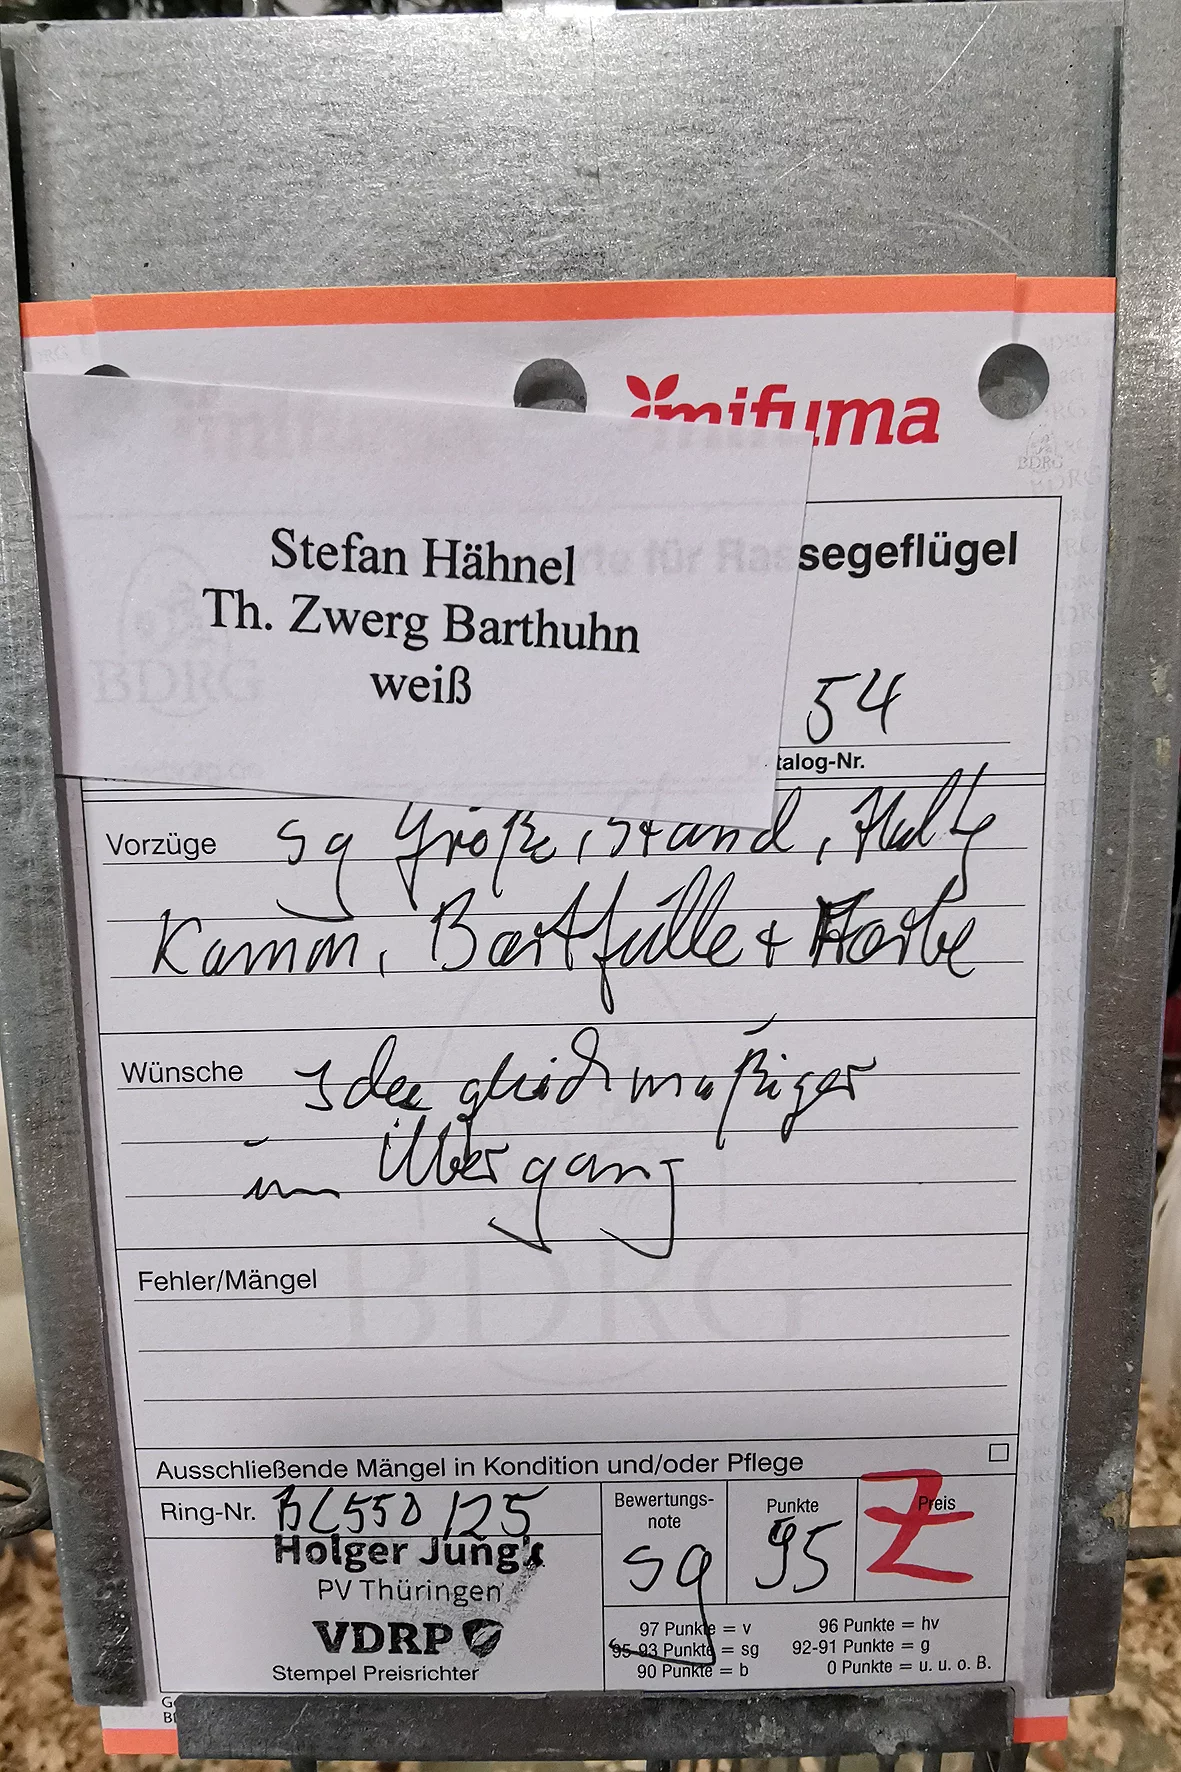 mifuma
Stefan Hähnel
Th. Zwerg Barthuhn
weiß
segeflügel
54
talog-Nr.
Vorzüge sg Größe, Stand,
Kamm, Bartfülle + Farbe
Wünsche Idee gleichmäßiger
im Übergang
BDRG
Fehler/Mängel
Ausschließende Mängel in Kondition und/oder Pflege
Ring-Nr. BL550 125
Holger Jung
PV Thüringen
VDRP
Stempel Preisrichter
Bewertungs-
note
sg
Punkte
95
Preis
Z
97 Punkte = v 96 Punkte = hv
95-93 Punkte = sg 92-91 Punkte = g
90 Punkte = b 0 Punkte = u. u. o. B.